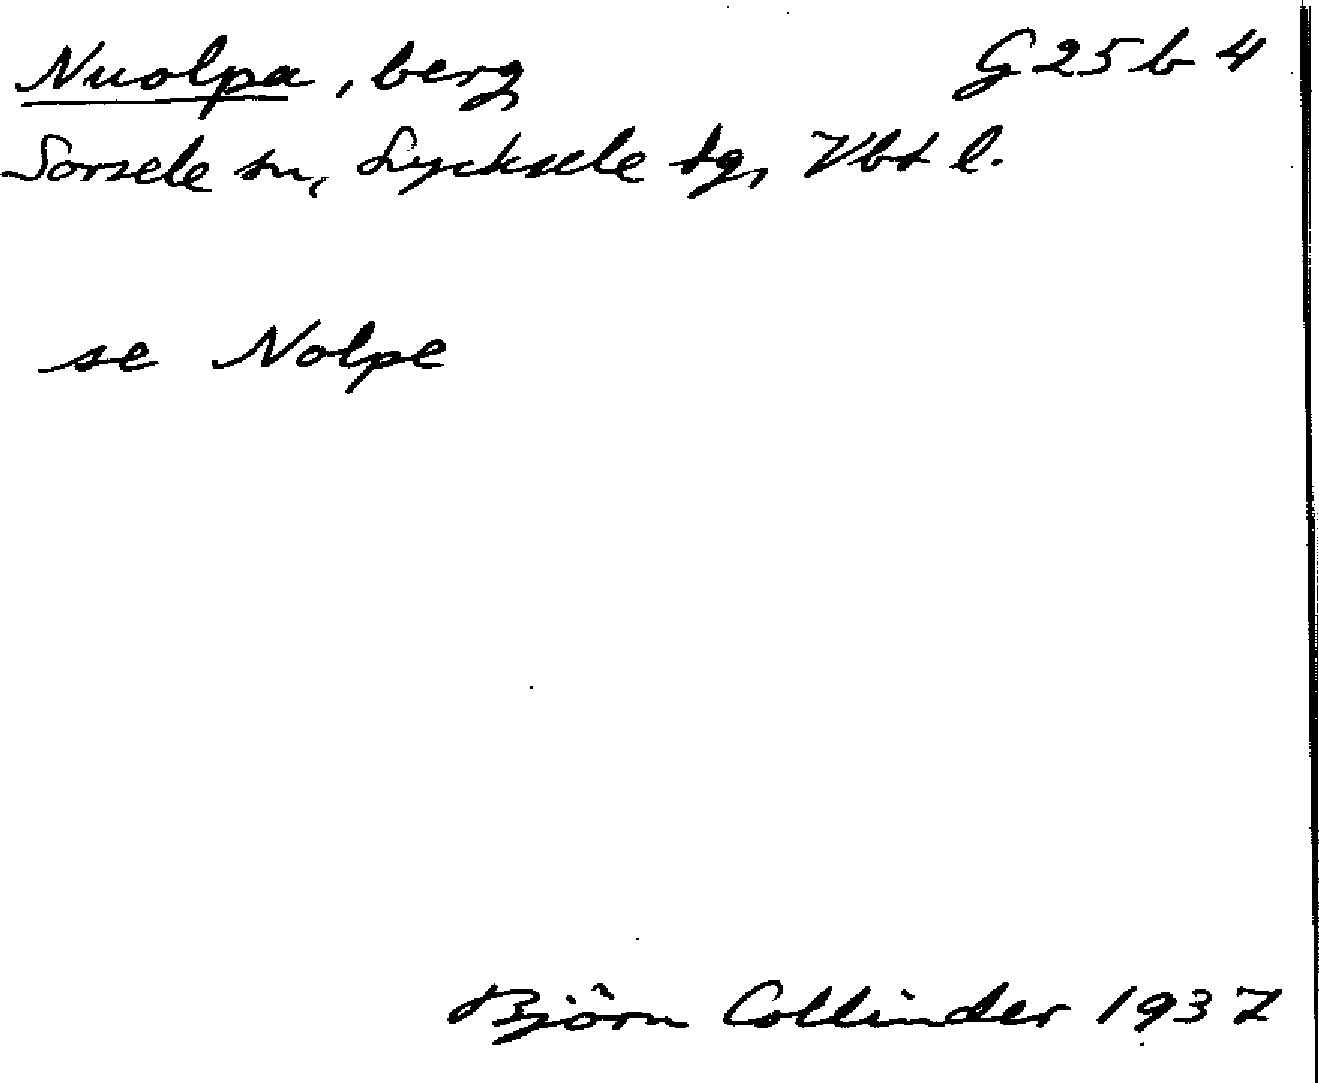 Nuolpa, berg G 25 b 4
Sorsele sn, Lycksele tg, Vbt l.
se Nolpe
Björn Collinder 1937